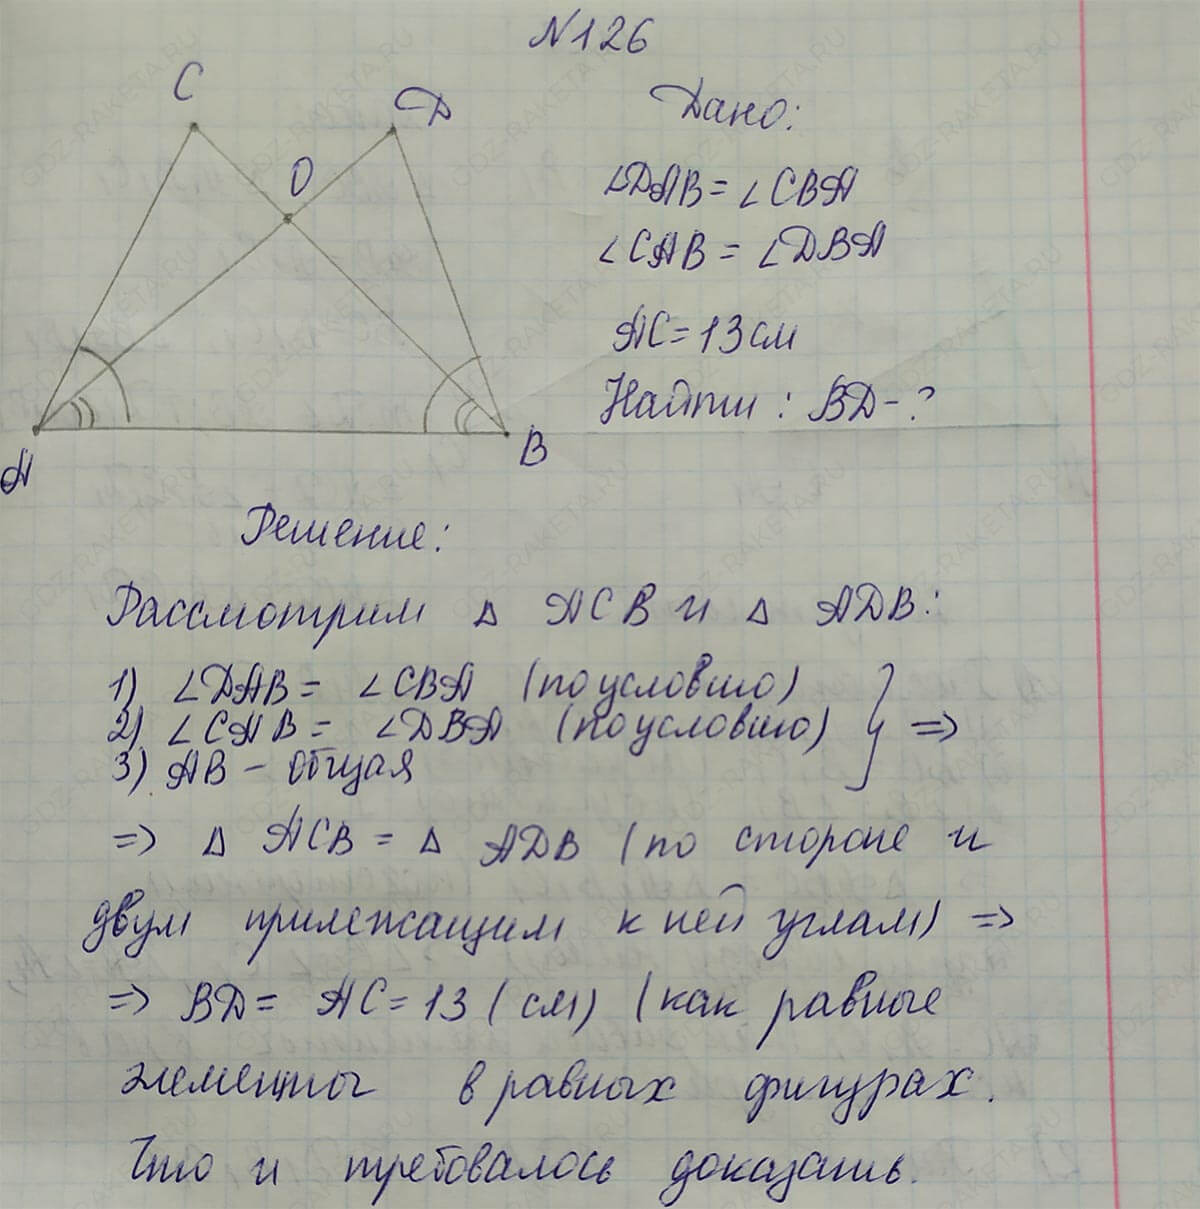 №126
C
D
O
A
B
Дано:
∠DAB = ∠CBA
∠CAB = ∠DBA
AC = 13 см
Найти: BD - ?
Решение:
Рассмотрим △ ACB и △ ADB:
1) ∠DAB = ∠CBA (по условию)
2) ∠CAB = ∠DBA (по условию) } =>
3) AB - общая
=> △ ACB = △ ADB (по стороне и
двум прилежащим к ней углам) =>
=> BD = AC = 13 (см) (как равные
элементы в равных фигурах.
Что и требовалось доказать.
GDZ-RAKETA.RU